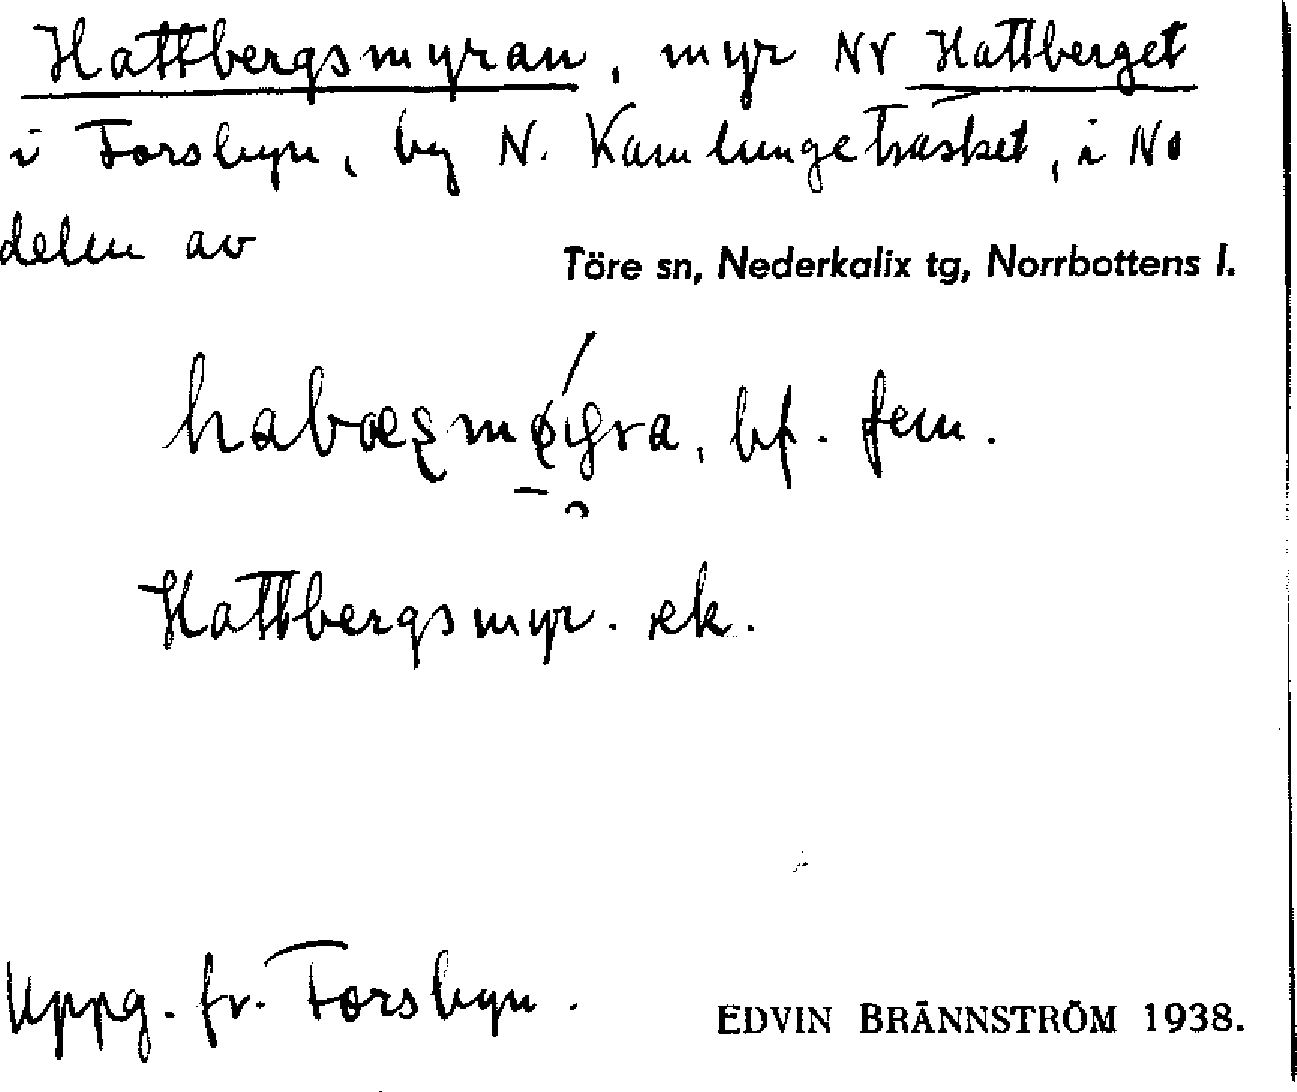 Hattbergsmyran, myr NV Hattberget
i Forsbyn, by N. Kamlungeträsket, i NO
delen av
Töre sn, Nederkalix tg, Norrbottens l.
bf. fem.
Hattbergsmyr. ek.
Uppg. fr. Forsbyn.
EDVIN BRÄNNSTRÖM 1938.